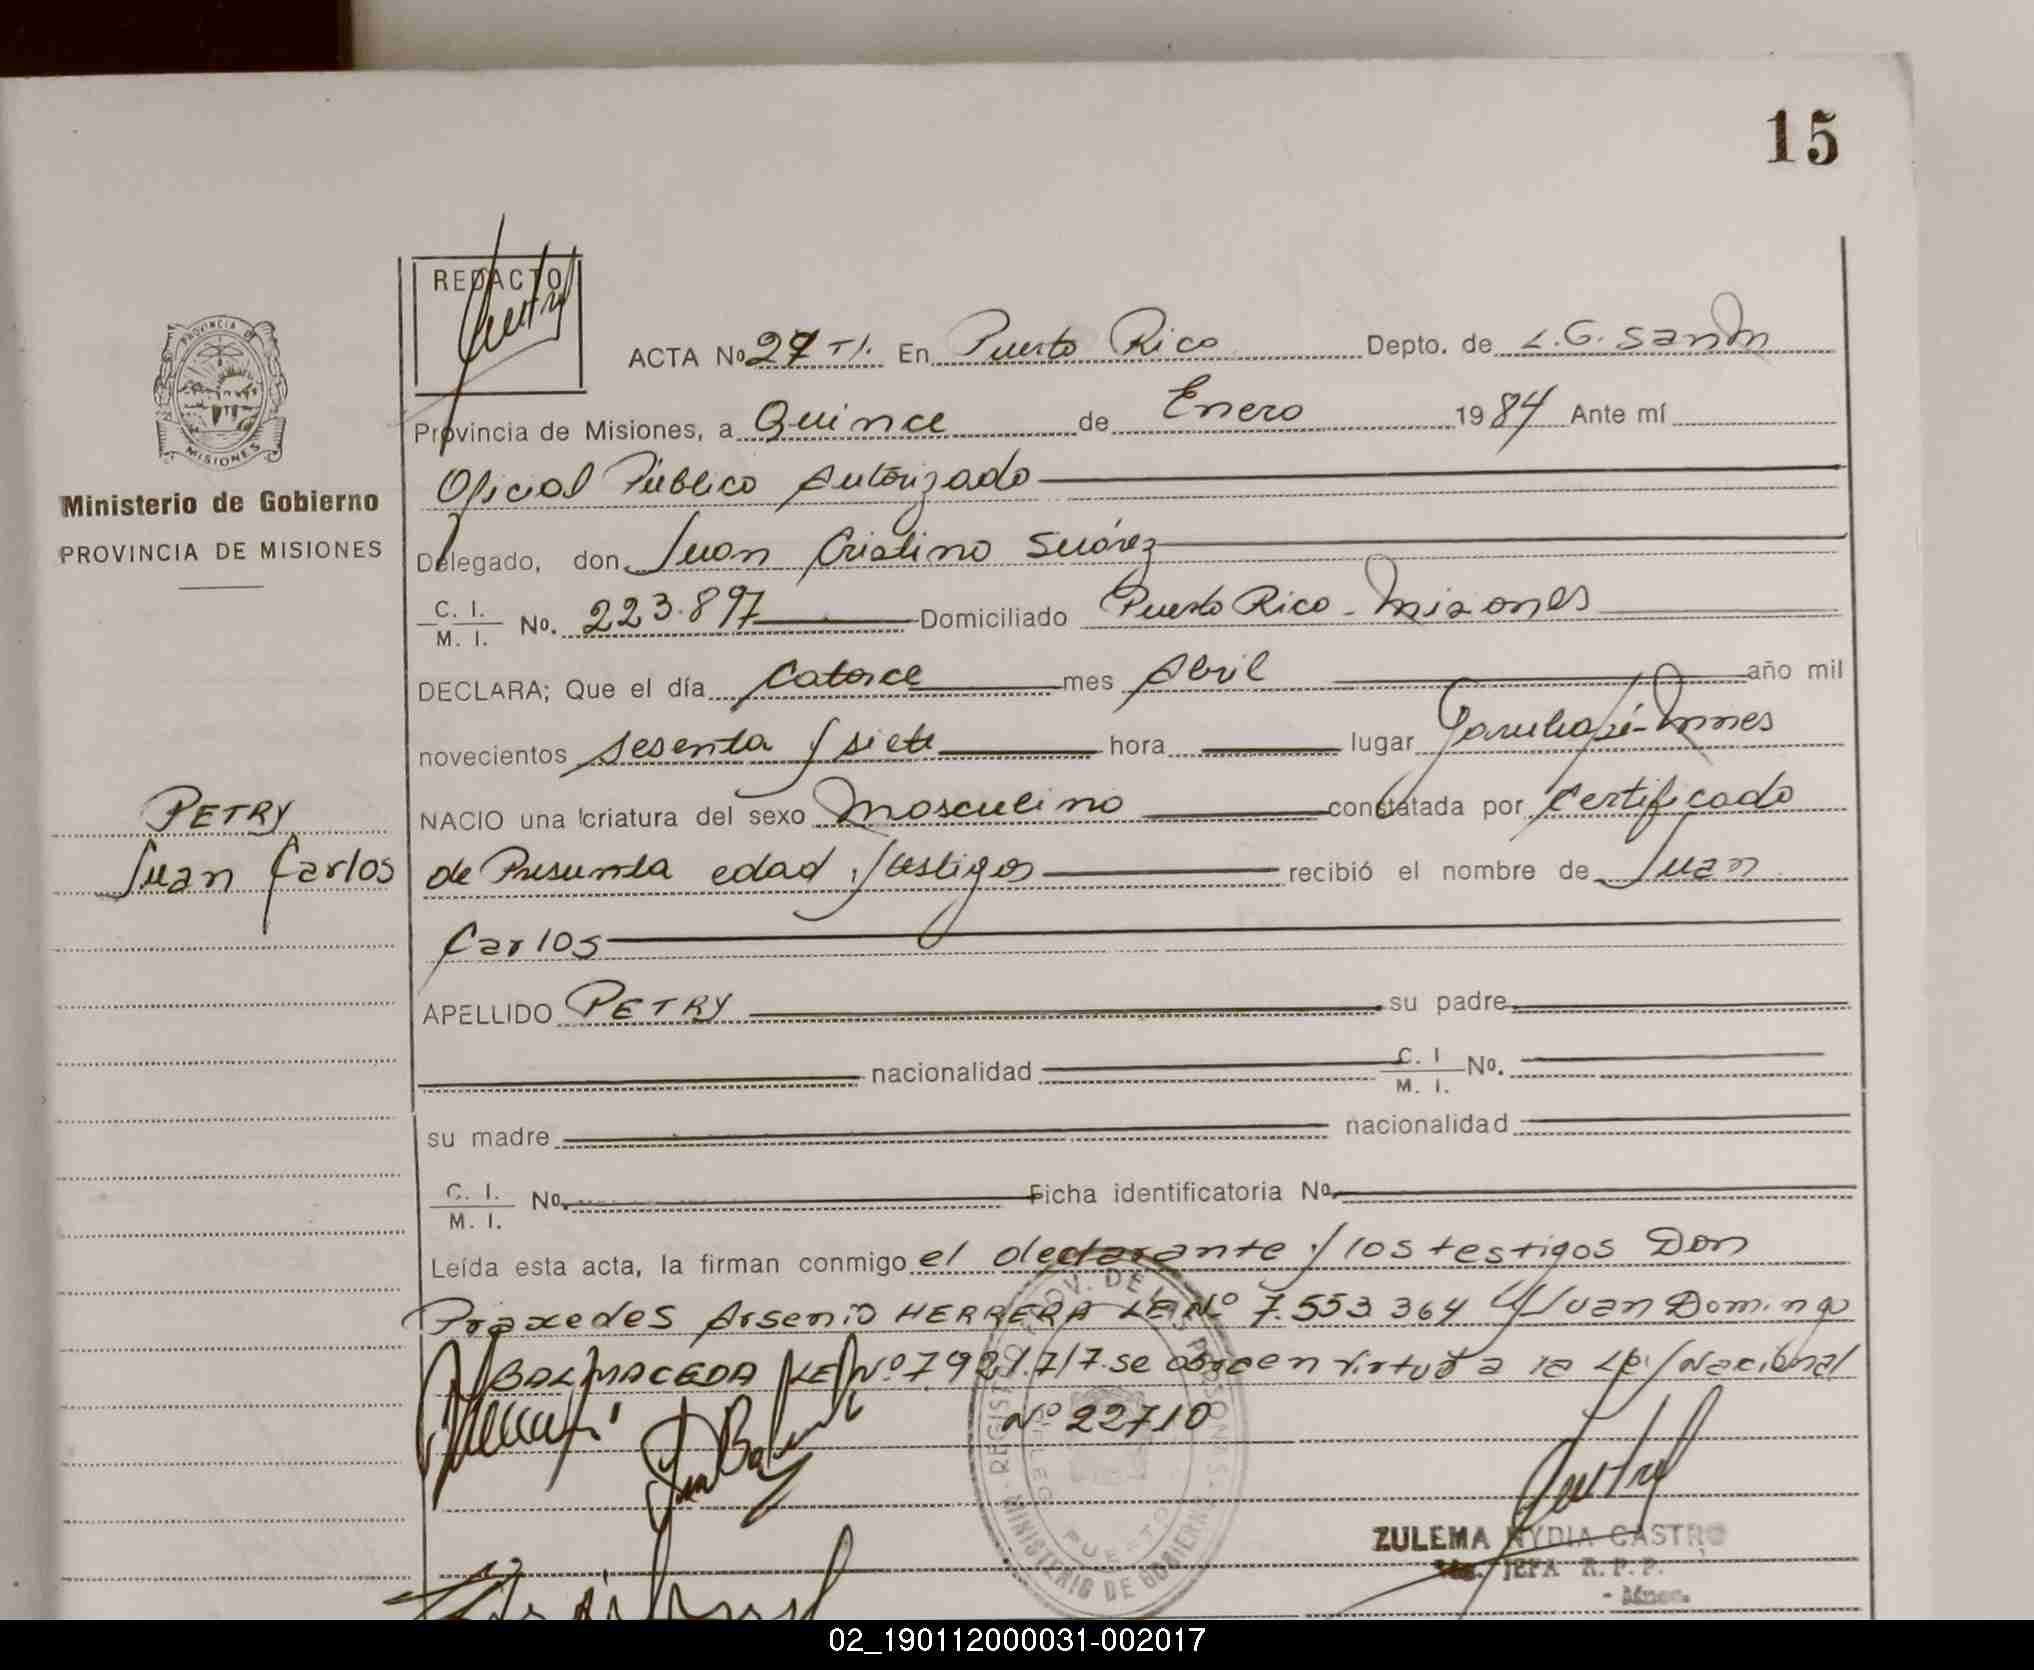 15
REDACTO
ACTA Nº 27 T1. En Puerto Rico Depto. de L.G. San M
Provincia de Misiones, a Quince de Enero 1984 Ante mí
Oficial Público Autorizado
Delegado, don Juan Cristino Suárez
C. I.
M. I. No. 223.897 Domiciliado Puerto Rico - Misiones
PROVINCIA DE MISIONES
Ministerio de Gobierno
PROVINCIA DE MISIONES
DECLARA; Que el día Catorce mes Abril año mil
novecientos sesenta y siete hora lugar Garuhapé - Mnes
NACIO una criatura del sexo Masculino constatada por Certificado
de Presunta edad y testigos recibió el nombre de Juan
Carlos
PETRY
Juan Carlos
APELLIDO PETRY su padre
nacionalidad C. I
M. I. No.
su madre nacionalidad
C. I.
M. I. No. Ficha identificatoria No.
Leída esta acta, la firman conmigo el declarante y los testigos Don
Práxedes Arsenio HERRERA LE Nº 7.553 364 y Juan Domingo
BALMACEDA LE Nº se labra en virtud a la Ley Nacional
Nº 22710
REGISTRO PROV. DE LAS PERSONAS
MINISTERIO DE GOBIERNO
PUERTO
ZULEMA NYDIA CASTRO
JEFA R. P. P.
- Mnes.
02_190112000031-002017